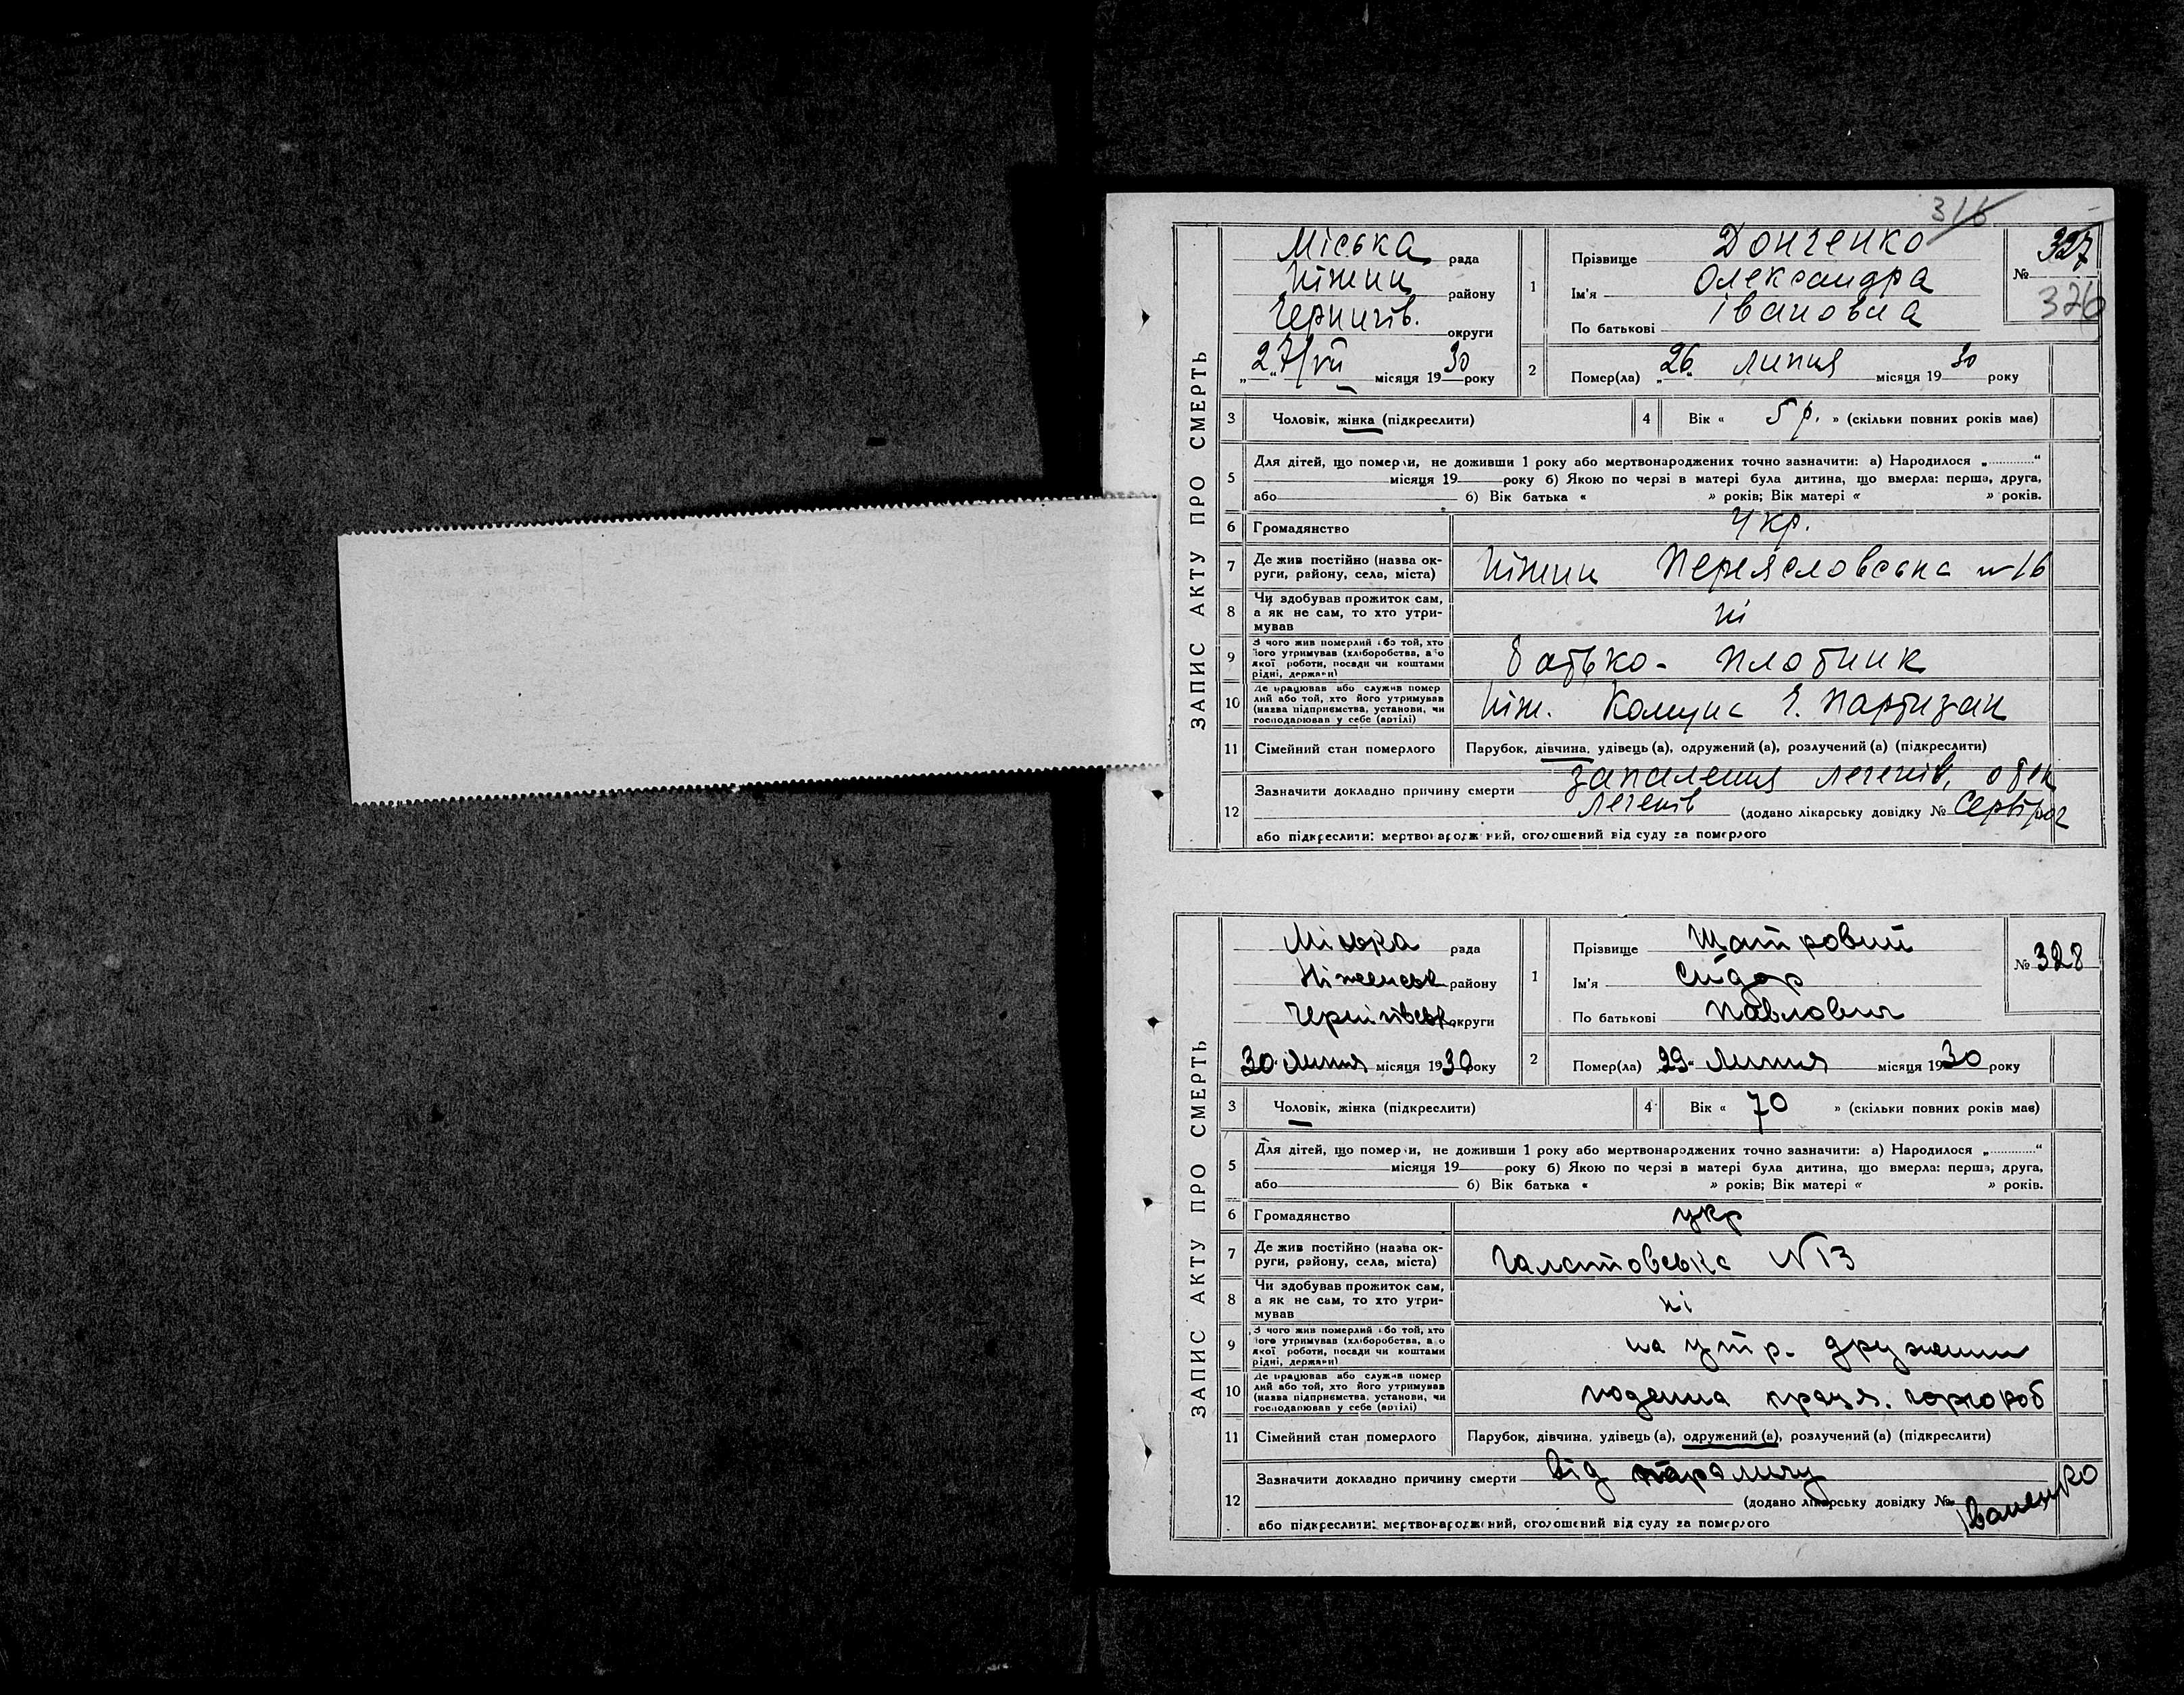 316
ЗАПИС АКТУ ПРО СМЕРТЬ
Міська рада
Ніжин району
Чернигів. округи
„27/VII місяця 1930 року
1
Прізвище Донченко
Ім'я Олександра
По батькові Івановна
№ 327
326
2
Помер(ла) „26„ липня місяця 1930 року
3 Чоловік, жінка (підкреслити)
4 Вік « 5 р. » (скільки повних років має)
5 Для дітей, що померли, не доживши 1 року або мертвонароджених точно зазначити: а) Народилося „ “
місяця 19 року б) Якою по черзі в матері була дитина, що вмерла: перша, друга,
або б) Вік батька « » років; Вік матері « » років.
6 Громадянство Укр.
7 Де жив постійно (назва ок-
руги, району, села, міста)
Ніжин Переясловська № 16
8 Чи здобував прожиток сам,
а як не сам, то хто утри-
мував
ні
9 З чого жив померлий або той, хто
його утримував (хліборобства, або
якої роботи, посади чи коштами
рідні, держави)
батько - плотник
10 Де працював або служив помер
лий або той, хто його утримував
(назва підприємства, установи, чи
господарював у себе (артілі)
Ніж. Комуна Ч. Партизан
11 Сімейний стан померлого Парубок, дівчина, удівець (а), одружений (а), розлучений (а) (підкреслити)
12 Зазначити докладно причину смерти запалення легенів, отек
легенів (додано лікарську довідку №
або підкреслити: мертвонароджений, оголошений від суду за померлого
ЗАПИС АКТУ ПРО СМЕРТЬ
Міська рада
Ніженськ району
Чернігівськ округи
30 Липня місяця 1930 року
1
Прізвище Шатровий
Ім'я Сидор
По батькові Павлович
№ 328
2
Помер(ла) „29“ Липня місяця 1930 року
3 Чоловік, жінка (підкреслити)
4 Вік « 70 » (скільки повних років має)
5 Для дітей, що померли, не доживши 1 року або мертвонароджених точно зазначити: а) Народилося „ “
місяця 19 року б) Якою по черзі в матері була дитина, що вмерла: перша, друга,
або б) Вік батька « » років; Вік матері « » років.
6 Громадянство укр
7 Де жив постійно (назва ок-
руги, району, села, міста)
Галатовська N 13
8 Чи здобував прожиток сам,
а як не сам, то хто утри-
мував
ні
9 З чого жив померлий або той, хто
його утримував (хліборобства, або
якої роботи, посади чи коштами
рідні, держави)
на утр. дружини
10 Де працював або служив помер
лий або той, хто його утримував
(назва підприємства, установи, чи
господарював у себе (артілі)
поденна праця. чорнороб
11 Сімейний стан померлого Парубок, дівчина, удівець (а), одружений (а), розлучений (а) (підкреслити)
12 Зазначити докладно причину смерти Від параличу
(додано лікарську довідку № Іваненко
або підкреслити: мертвонароджений, оголошений від суду за померлого